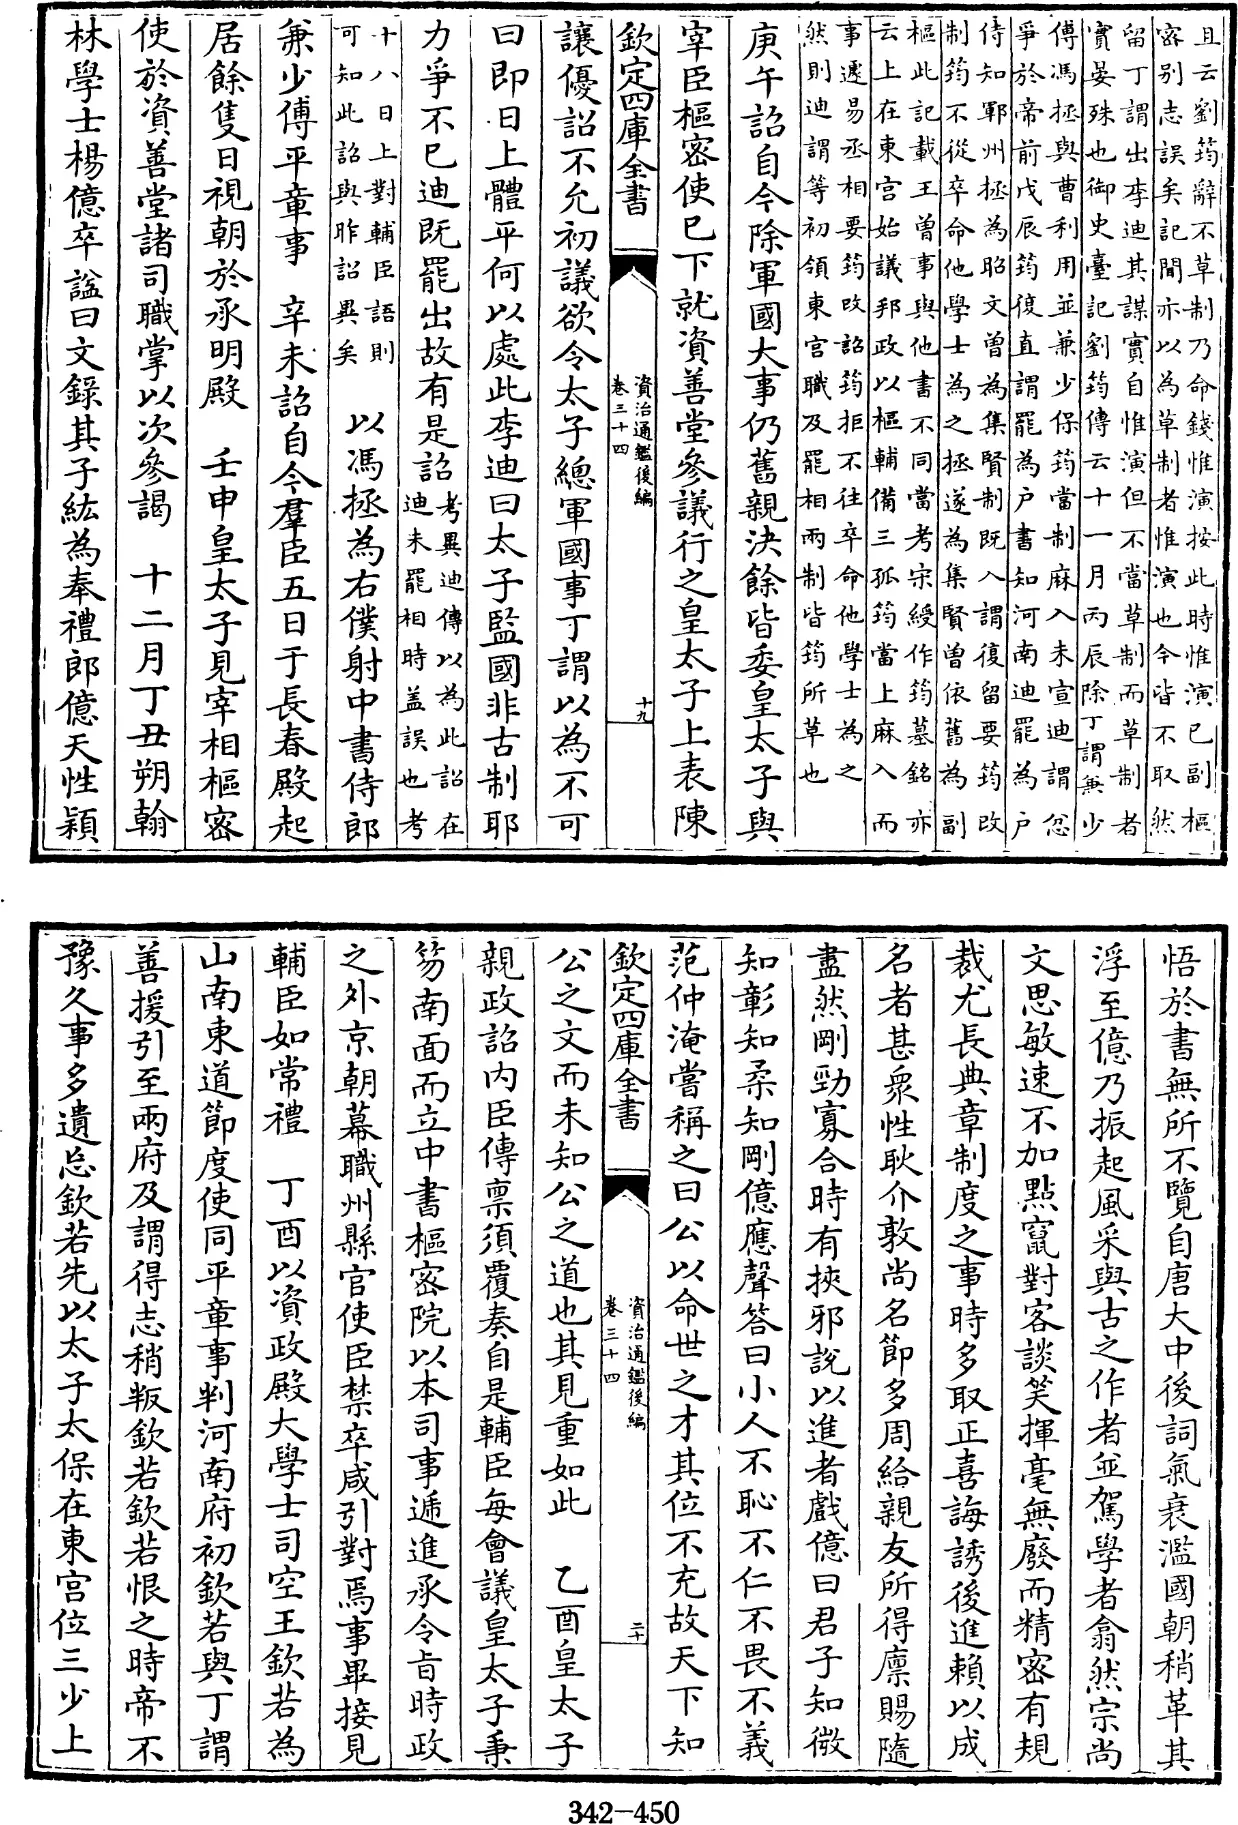 且云劉筠辭不草制乃命錢惟演按此時惟演已副樞
密别志誤矣記聞亦以為草制者惟演也今皆不取然
留丁謂出李迪其謀實自惟演但不當草制而草制者
實晏殊也御史臺記劉筠傳云十一月丙辰除丁謂兼少
傅馮拯與曹利用並兼少保筠當制麻入未宣迪謂忿
爭於帝前戊辰筠復直謂罷為户書知河南迪罷為户
侍知鄆州拯為昭文曾為集賢制既入謂復留要筠改
制筠不從卒命他學士為之拯遂為集賢曾依舊為副
樞此記載王曾事與他書不同當考宋綬作筠墓銘亦
云上在東宫始議邦政以樞輔備三孤筠當上麻入而
事遽易丞相要筠改詔筠拒不往卒命他學士為之
然則迪謂等初領東宫職及罷相兩制皆筠所草也
庚午詔自今除軍國大事仍舊親決餘皆委皇太子與
宰臣樞密使已下就資善堂參議行之皇太子上表陳
欽定四庫全書
資治通鑑後編
卷三十四
十九
讓優詔不允初議欲令太子總軍國事丁謂以為不可
曰即日上體平何以處此李迪曰太子監國非古制耶
力爭不已迪既罷出故有是詔
考異迪傳以為此詔在
迪未罷相時盖誤也考
十八日上對輔臣語則
可知此詔與昨詔異矣
以馮拯為右僕射中書侍郎
兼少傅平章事　辛未詔自今羣臣五日于長春殿起
居餘隻日視朝於承明殿　壬申皇太子見宰相樞密
使於資善堂諸司職掌以次參謁　十二月丁丑朔翰
林學士楊億卒諡曰文錄其子紘為奉禮郎億天性穎
悟於書無所不覽自唐大中後詞氣衰濫國朝稍革其
浮至億乃振起風采與古之作者並駕學者翕然宗尚
文思敏速不加點竄對客談笑揮毫無廢而精密有規
裁尤長典章制度之事時多取正喜誨誘後進賴以成
名者甚衆性耿介敦尚名節多周給親友所得廪賜隨
盡然剛勁寡合時有挾邪說以進者戲億曰君子知微
知彰知柔知剛億應聲答曰小人不恥不仁不畏不義
范仲淹嘗稱之曰公以命世之才其位不充故天下知
欽定四庫全書
資治通鑑後編
卷三十四
二十
公之文而未知公之道也其見重如此　乙酉皇太子
親政詔内臣傳稟須覆奏自是輔臣每會議皇太子秉
笏南面而立中書樞密院以本司事遞進承令旨時政
之外京朝幕職州縣官使臣禁卒咸引對焉事畢接見
輔臣如常禮　丁酉以資政殿大學士司空王欽若為
山南東道節度使同平章事判河南府初欽若與丁謂
善援引至兩府及謂得志稍叛欽若欽若恨之時帝不
豫久事多遺忘欽若先以太子太保在東宫位三少上
342-450